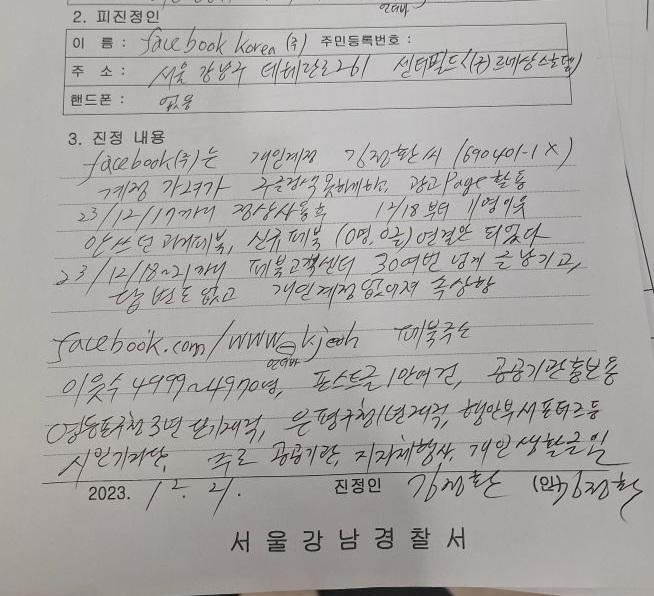 언더바
2. 피진정인
이 름 : facebook korea (주) 주민등록번호 :
주 소 : 서울 강남구 테헤란로261 센터필드(구)르네상스호텔)
핸드폰 : 없음
3. 진정 내용
facebook(주)는 개인계정 김정환씨 (690401-1X)
계정 가려가 구글검색 못하게하, 광고Page활동
23/12/17까지 정상사용후 12/18부터 11명이웃
안쓰던 과거페북, 신규페북 (0명, 0글) 연결만 되었다
23/12/18~21까지 페북고객센터 30여번 넘게 글남기고,
답변도 없고 개인계정 없어져 속상함
facebook.com/www_kjeoh 페북주소
언더바
이웃수 4999~4970명, 포스트글 1만여건, 공공기관홍보용
(영등포구청 3년 단기재직, 은평구청1년재직, 행안부서포터즈등
시민기자단, 주로 공공기관, 지자체행사, 개인생활글임
2023. 12. 21. 진정인 김정환 (인)김정환
서울강남경찰서